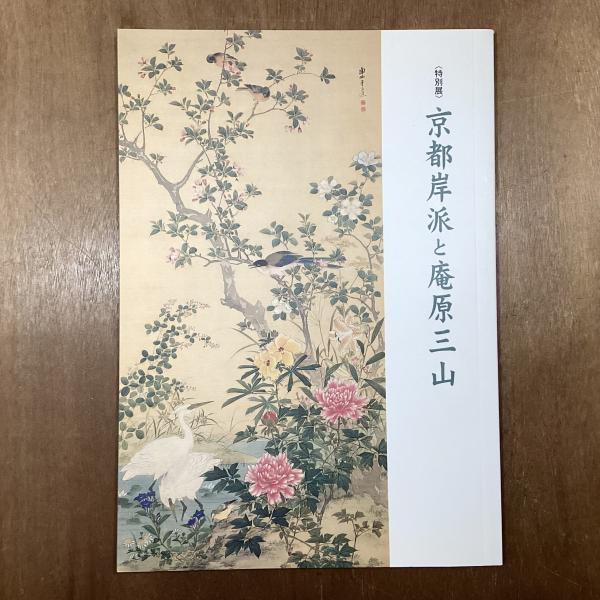 〈特別展〉
京都岸派と庵原三山